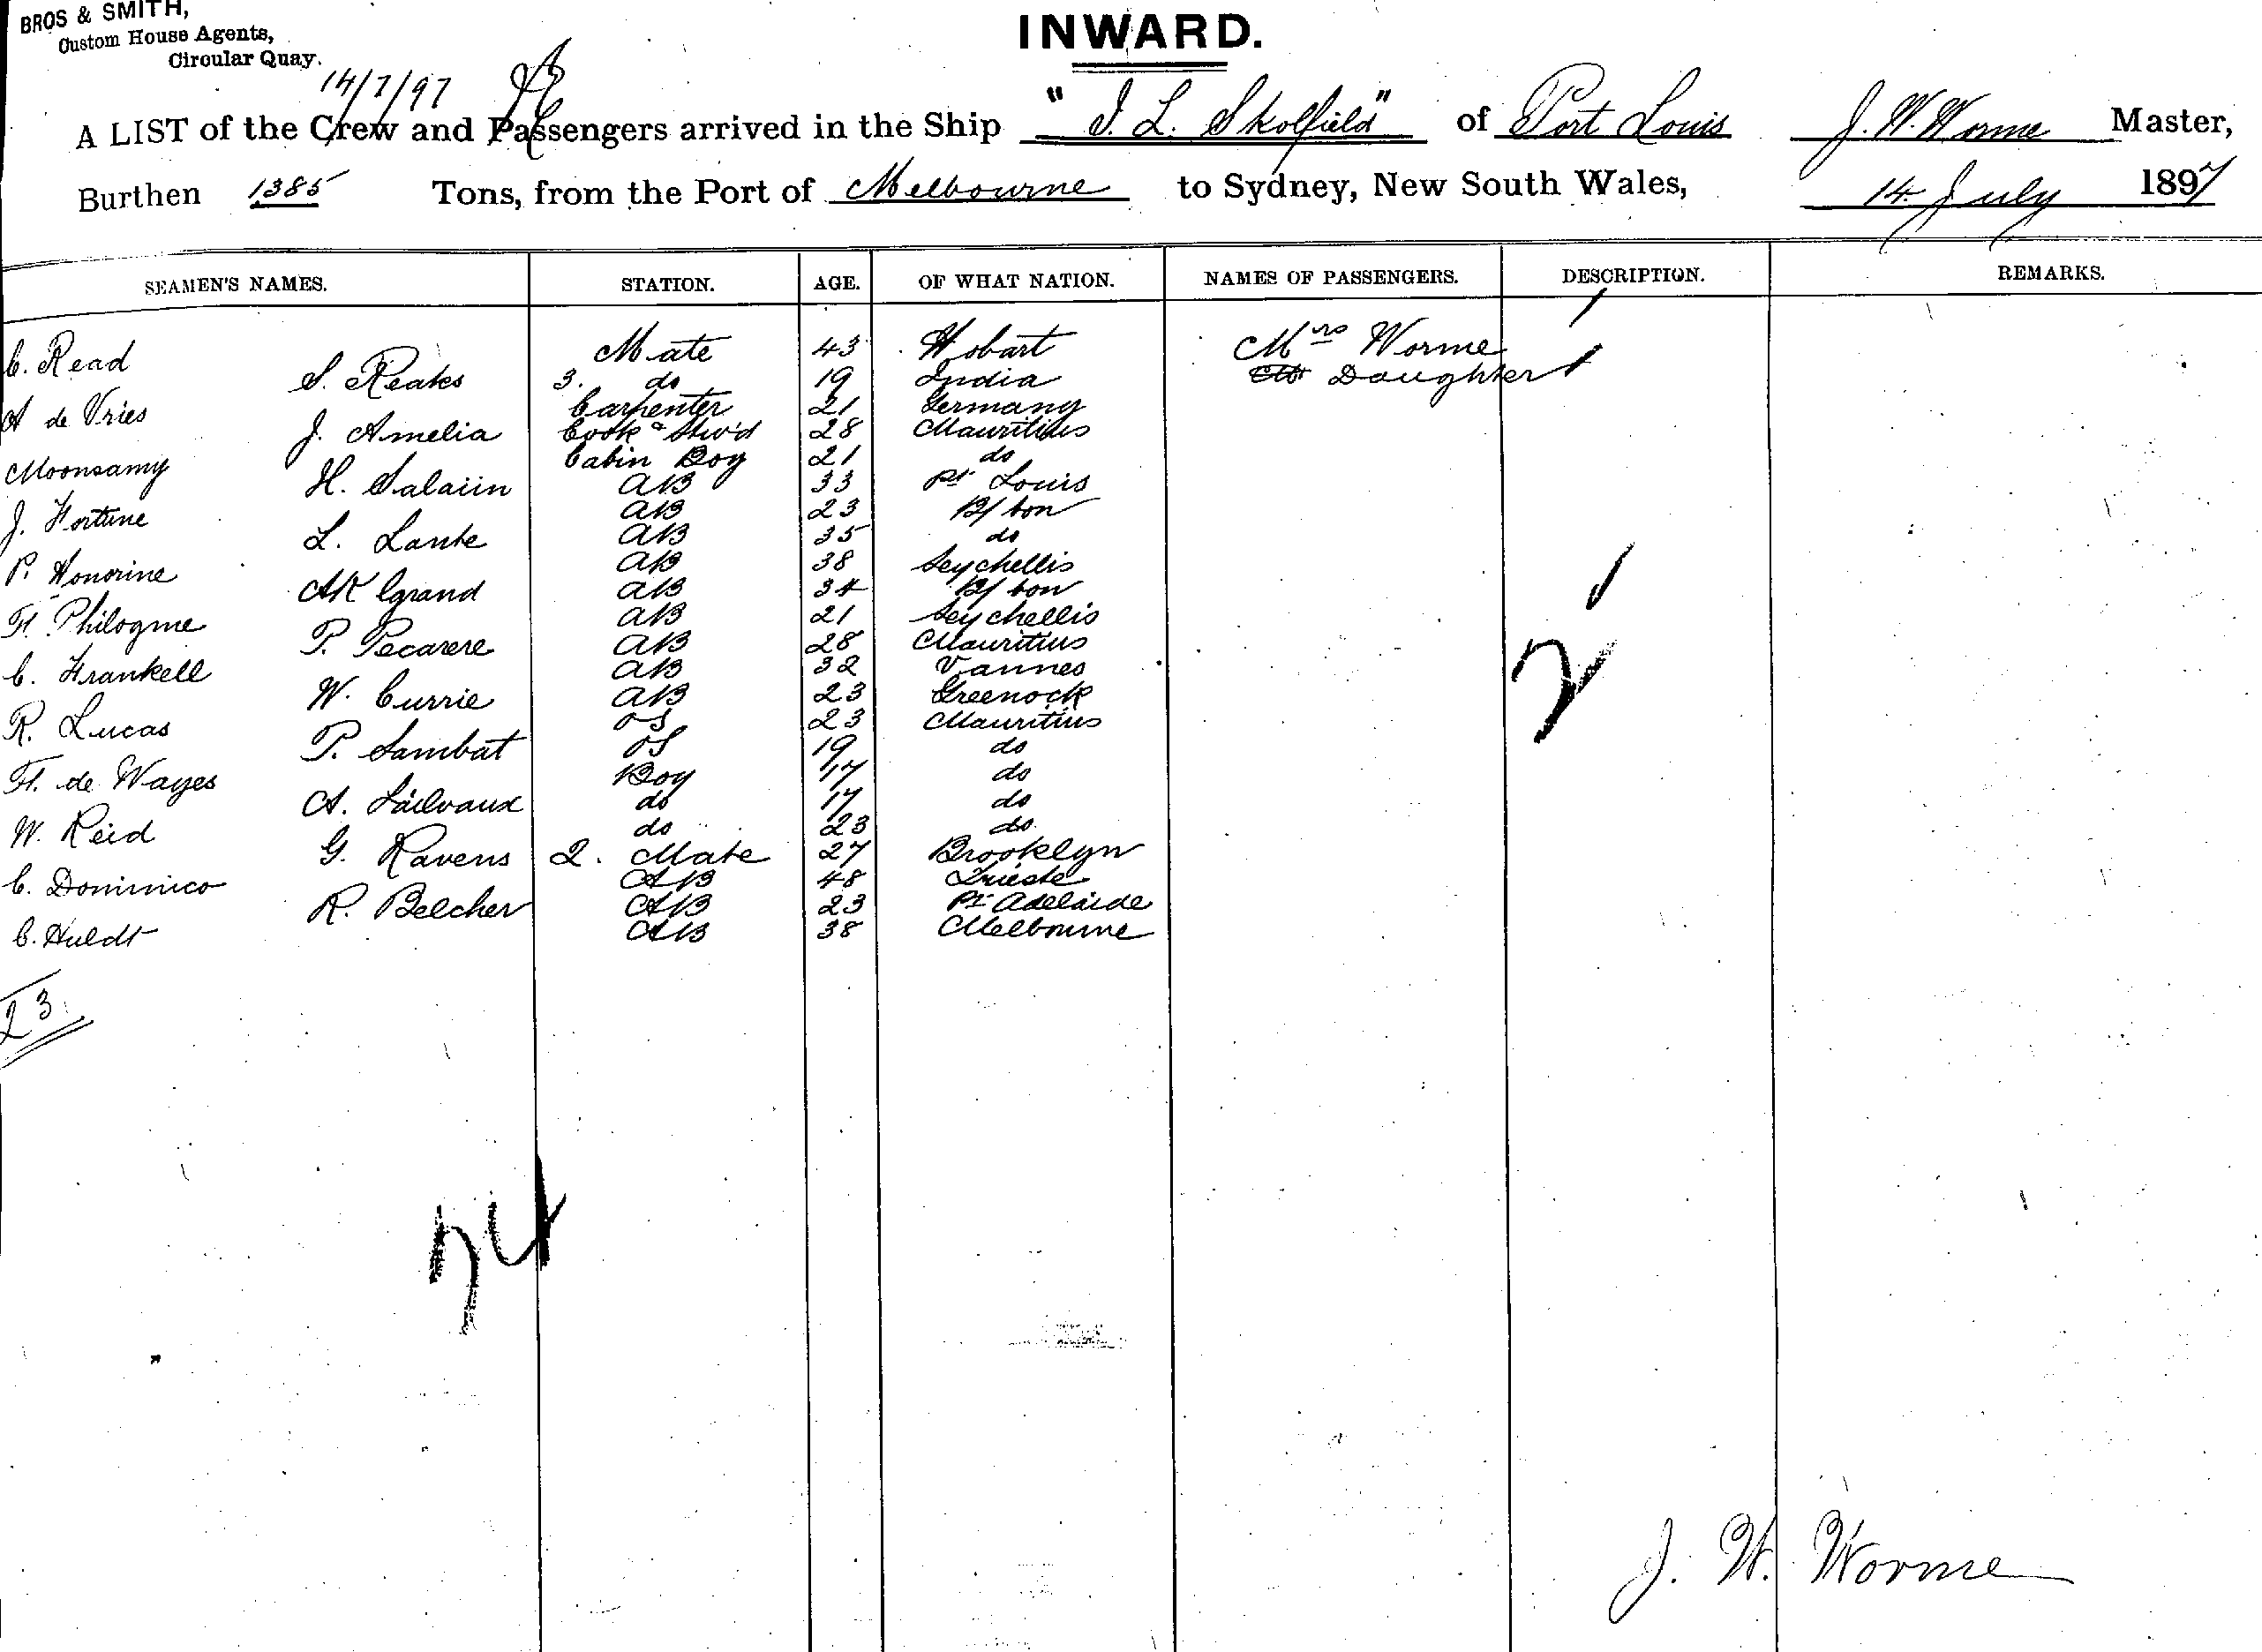 BROS & SMITH,
Custom House Agents,
Circular Quay.
INWARD.
14/7/97
A LIST of the Crew and Passengers arrived in the Ship "I. L. Skolfield" of Port Louis J. W. Worme Master,
Burthen 1385 Tons, from the Port of Melbourne to Sydney, New South Wales, 14 July 1897
SEAMEN'S NAMES. STATION. AGE. OF WHAT NATION. NAMES OF PASSENGERS. DESCRIPTION. REMARKS.
C. Read Mate 43 Hobart Mrs Worme
S. Reaks 3. do 19 India Daughter
A de Vries Carpenter 21 Germany
J. Amelia Cook & Stw'd 28 Mauritius
Moonsamy Cabin Boy 21 do
H. Salaiin AB 33 Pt Louis
J. Fortune AB 23 B/bon
L. Lante AB 35 do
P. Honorine AB 38 Seychellis
grand AB 34 B/bon
F. Philogme AB 21 Seychellis
P. Pecarere AB 28 Mauritius
C. Frankell AB 32 Vannes
W. Currie AB 23 Greenock
R. Lucas OS 23 Mauritius
P. Sambat OS 19 do
F. de Wayes Boy 17 do
A. do 17 do
W. Reid do 23 do
G. Ravens 2. Mate 27 Brooklyn
C. Dominico AB 48 Trieste
R. Belcher AB 23 Pt Adelaide
C. Huldt AB 38 Melbourne
2
23
24
J. W. Worme